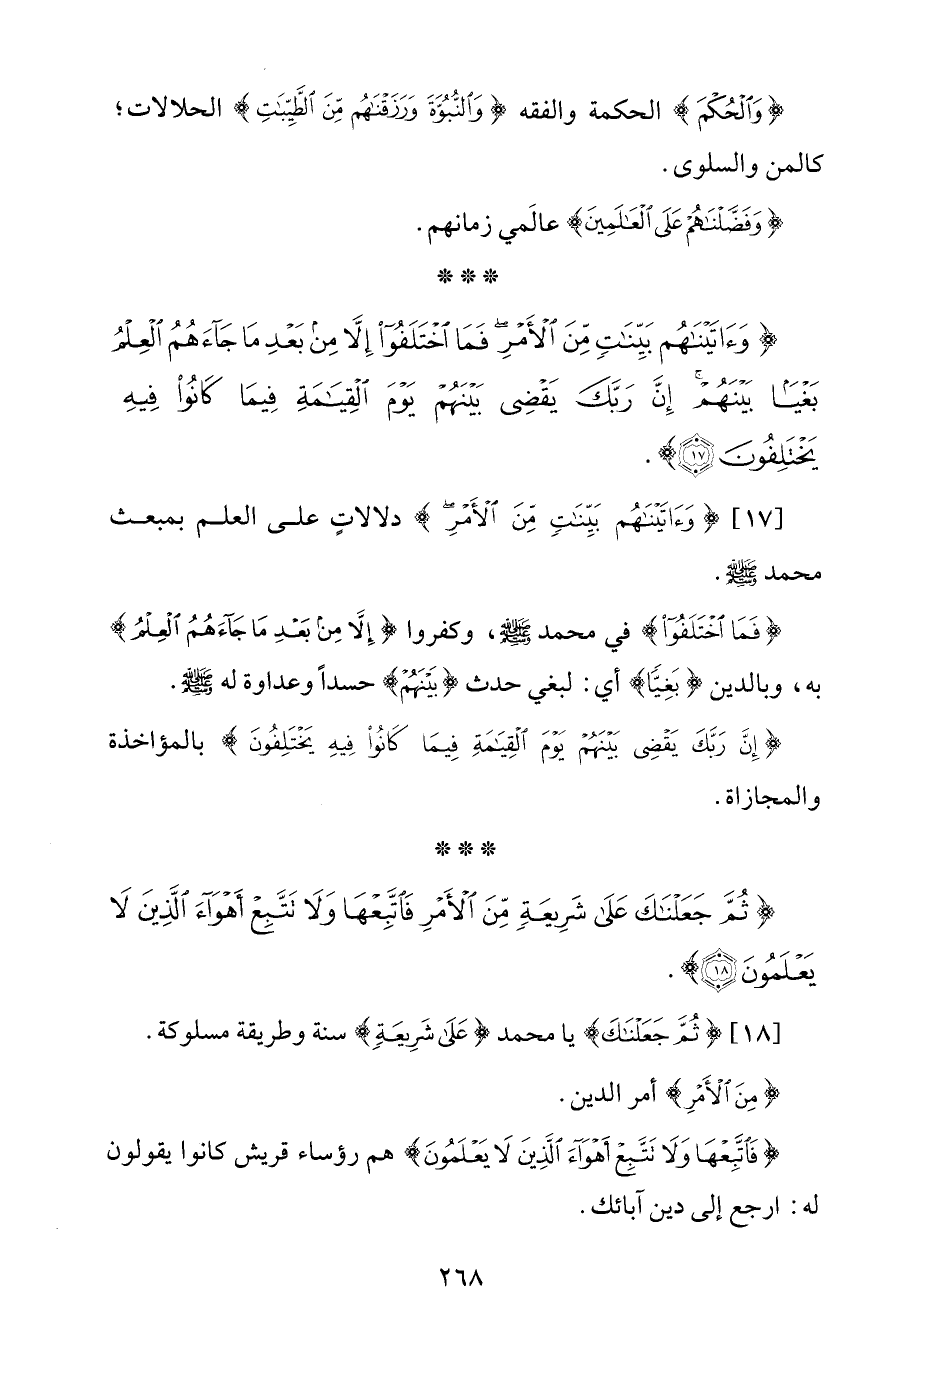 ﴿وَٱلْحُكْمَ﴾ الحكمة والفقه ﴿وَٱلنُّبُوَّةَ وَرَزَقْنَٰهُم مِّنَ ٱلطَّيِّبَٰتِ﴾ الحلالات؛
كالمن والسلوى.
﴿وَفَضَّلْنَٰهُمْ عَلَى ٱلْعَٰلَمِينَ﴾ عالَمي زمانهم.
* * *
﴿وَءَاتَيْنَٰهُم بَيِّنَٰتٍ مِّنَ ٱلْأَمْرِ ۖ فَمَا ٱخْتَلَفُوٓا۟ إِلَّا مِنۢ بَعْدِ مَا جَآءَهُمُ ٱلْعِلْمُ
بَغْيًۢا بَيْنَهُمْ ۚ إِنَّ رَبَّكَ يَقْضِى بَيْنَهُمْ يَوْمَ ٱلْقِيَٰمَةِ فِيمَا كَانُوا۟ فِيهِ
يَخْتَلِفُونَ ١٧﴾.
[١٧] ﴿وَءَاتَيْنَٰهُم بَيِّنَٰتٍ مِّنَ ٱلْأَمْرِ ۖ﴾ دلالاتٍ على العلم بمبعث
محمد ﷺ.
﴿فَمَا ٱخْتَلَفُوٓا۟﴾ في محمد ﷺ، وكفروا ﴿إِلَّا مِنۢ بَعْدِ مَا جَآءَهُمُ ٱلْعِلْمُ﴾
به، وبالدين ﴿بَغْيًا﴾ أي: لبغي حدث ﴿بَيْنَهُمْ﴾ حسداً وعداوة له ﷺ.
﴿إِنَّ رَبَّكَ يَقْضِى بَيْنَهُمْ يَوْمَ ٱلْقِيَٰمَةِ فِيمَا كَانُوا۟ فِيهِ يَخْتَلِفُونَ﴾ بالمؤاخذة
والمجازاة.
* * *
﴿ثُمَّ جَعَلْنَٰكَ عَلَىٰ شَرِيعَةٍ مِّنَ ٱلْأَمْرِ فَٱتَّبِعْهَا وَلَا تَتَّبِعْ أَهْوَآءَ ٱلَّذِينَ لَا
يَعْلَمُونَ ١٨﴾.
[١٨] ﴿ثُمَّ جَعَلْنَٰكَ﴾ يا محمد ﴿عَلَىٰ شَرِيعَةٍ﴾ سنة وطريقة مسلوكة.
﴿مِنَ ٱلْأَمْرِ﴾ أمر الدين.
﴿فَٱتَّبِعْهَا وَلَا تَتَّبِعْ أَهْوَآءَ ٱلَّذِينَ لَا يَعْلَمُونَ﴾ هم رؤساء قريش كانوا يقولون
له: ارجع إلى دين آبائك.
٢٦٨